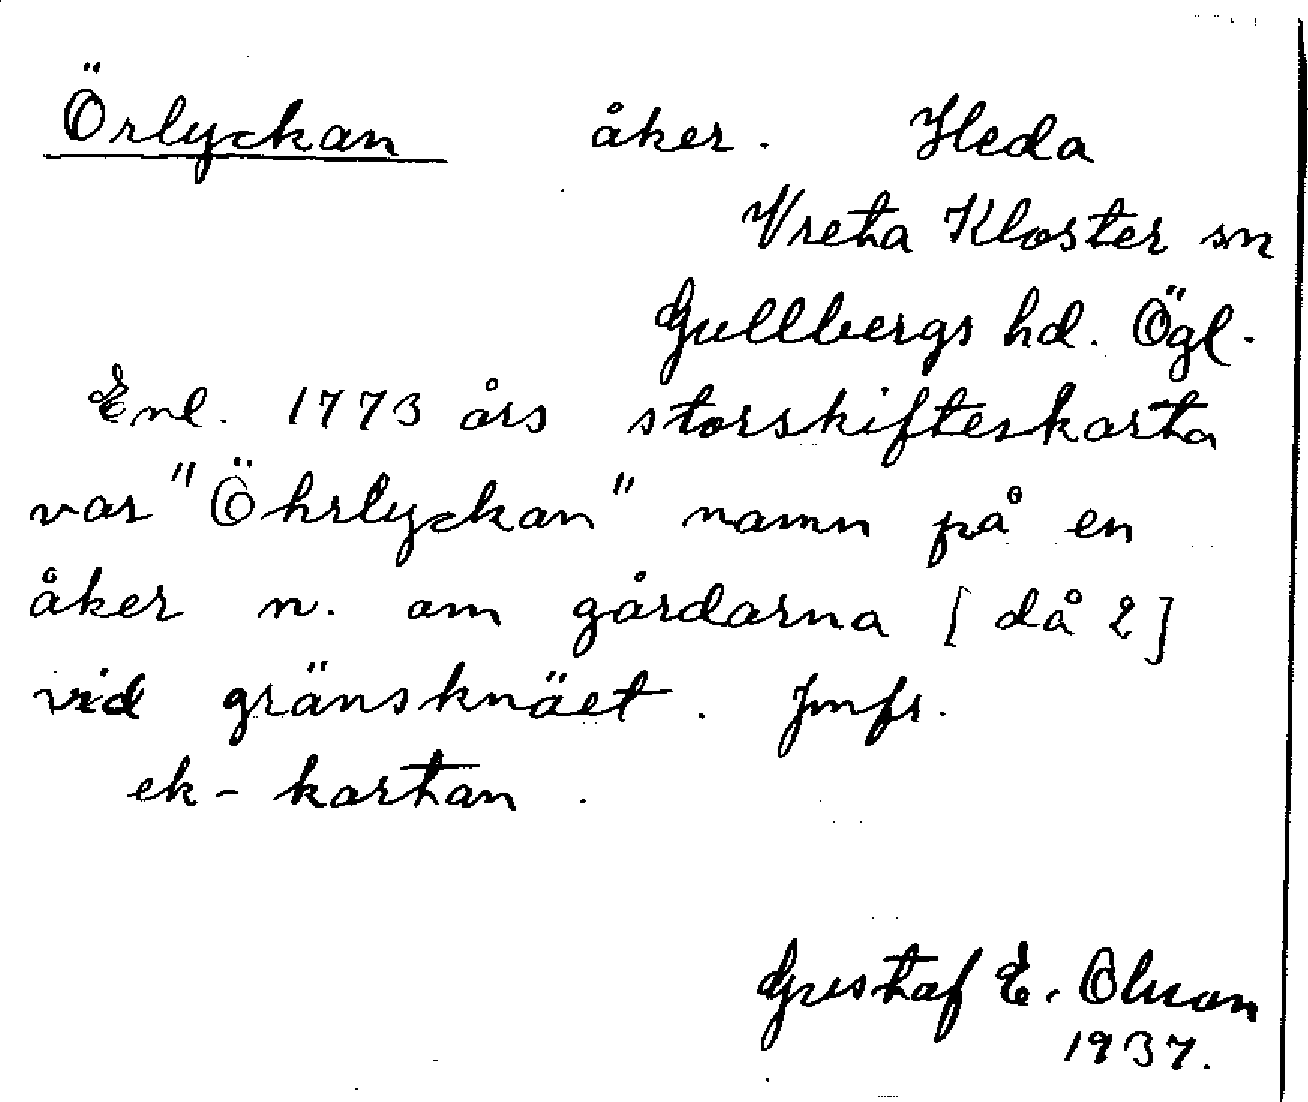 Örlyckan åker. Heda
Vreta Kloster sn
Gullbergs hd. Ögl.
Enl. 1773 års storskifteskarta
var "Öhrlyckan" namn på en
åker n. om gårdarna [då 2]
vid gränsknäet. Jmfr.
ek-kartan.
Gustaf E. Olsson
1937.